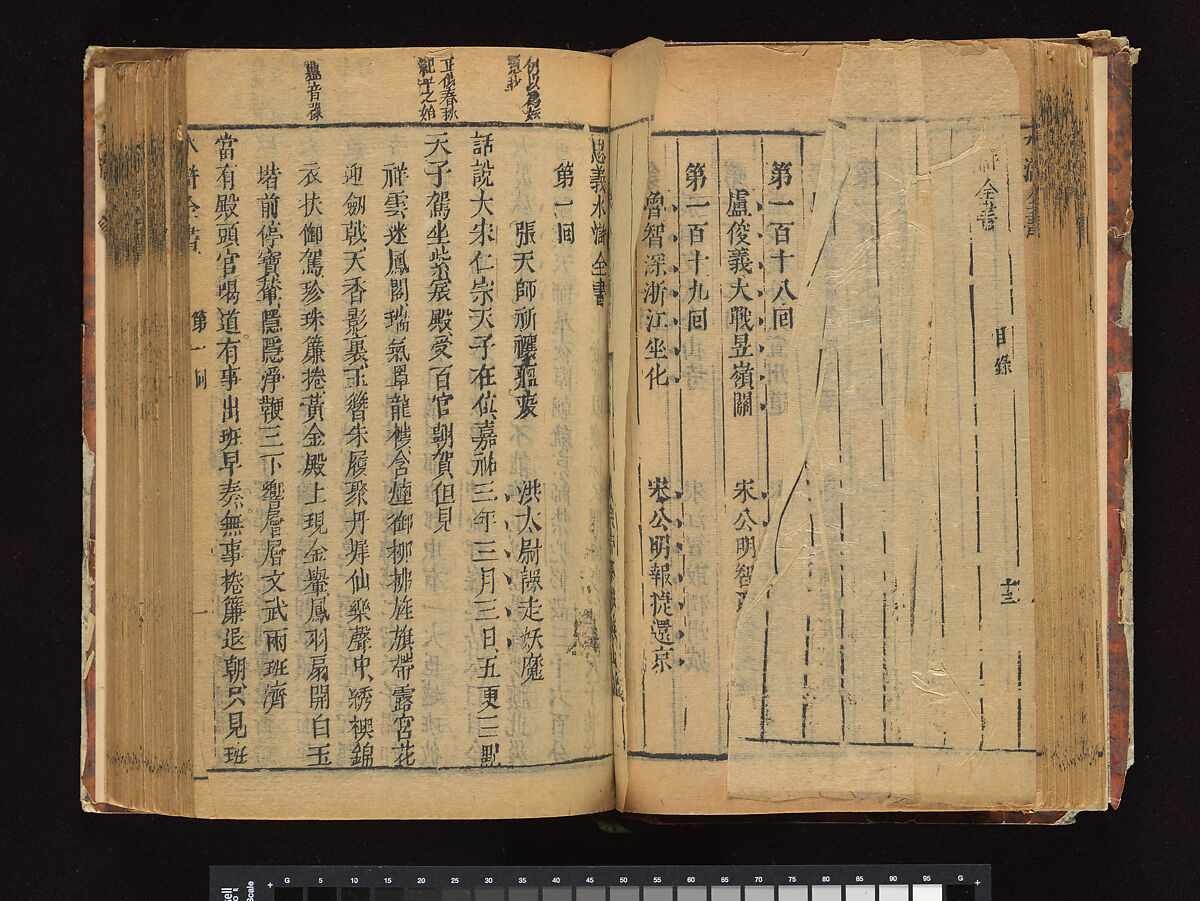 全書
目錄
十三
第一百十八回
盧俊義大戰昱嶺關 宋公明智
第一百十九回
魯智深浙江坐化 宋公明報捷還京
忠義水滸全書
第一回
張天師祈禳瘟疫 洪太尉誤走妖魔
話說大宋仁宗天子在位嘉祐三年三月三日五更三點
天子駕坐紫宸殿受百官朝賀但見
祥雲迷鳳閣瑞氣罩龍樓含煙御柳拂旌旗帶露宮花
迎劍戟天香影裏玉簪朱履聚丹墀仙樂聲中綉襖錦
衣扶御駕珍珠簾捲黃金殿上現金轝鳳羽扇開白玉
堦前停寶輦隱隱淨鞭三下響層層文武兩班濟
當有殿頭官喝道有事出班早奏無事捲簾退朝只見班
水滸全書
第一回
一
正似春秋
紀年之始